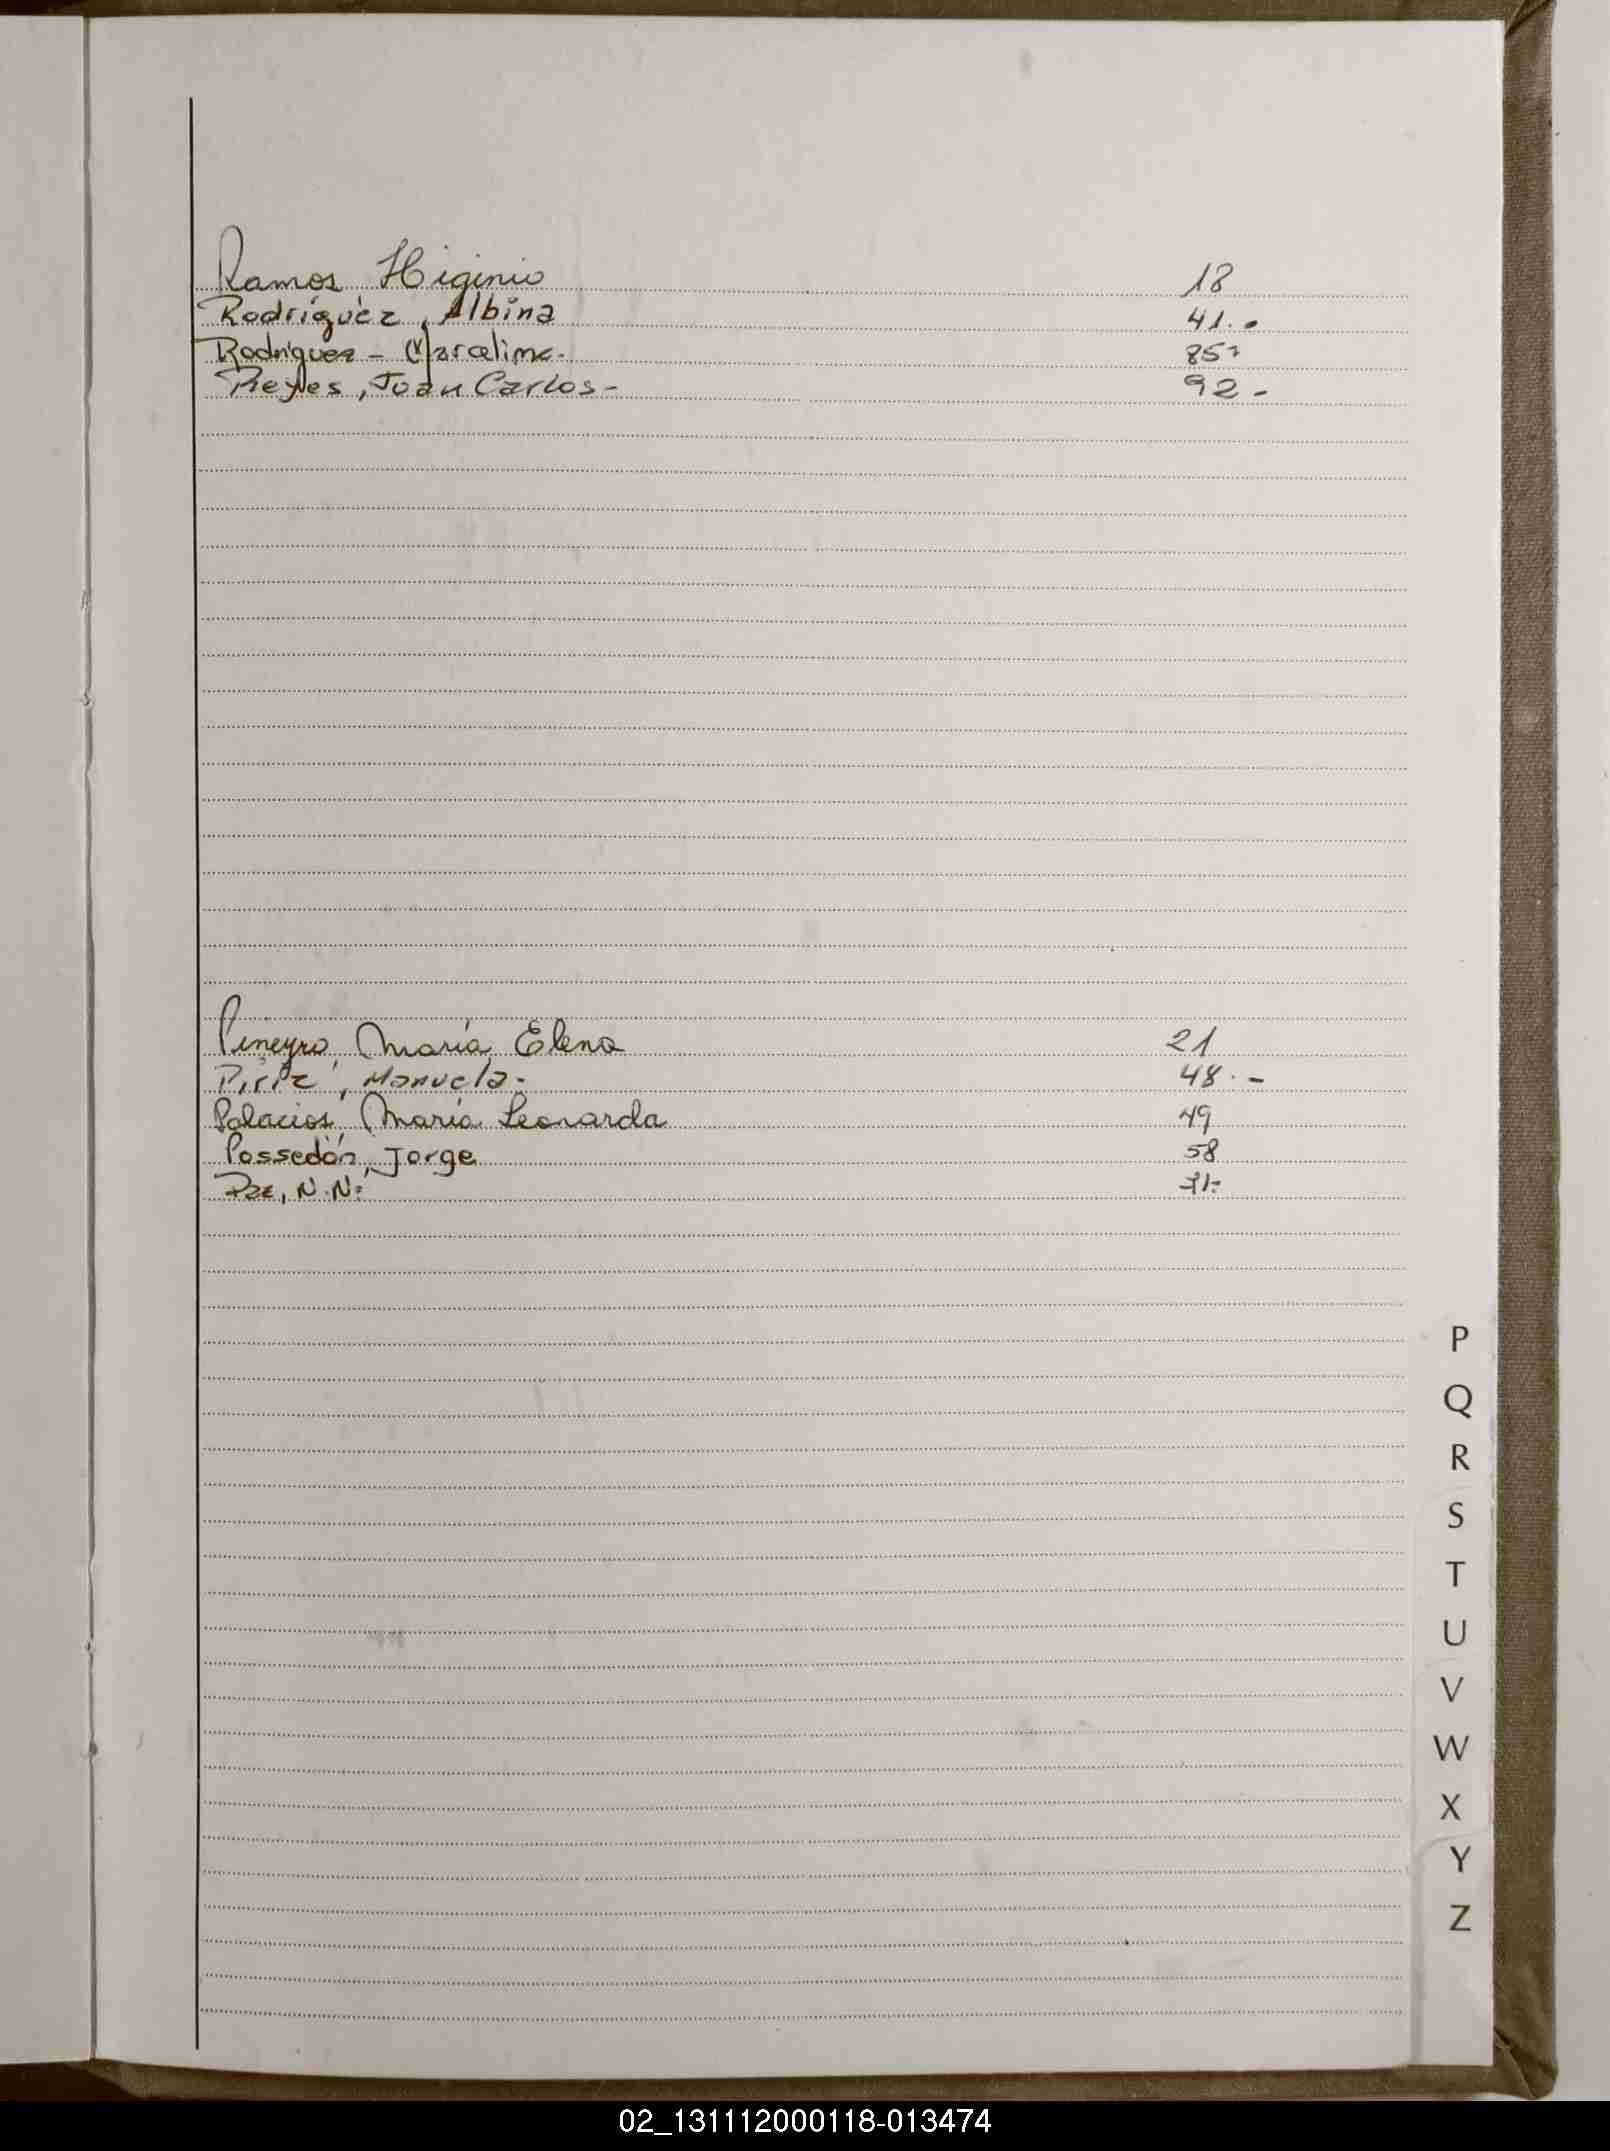 Ramos Higinio 18
Rodríguez, Albina 41.-
Rodriguez - Marcelina.- 85-
Reyes, Juan Carlos- 92-
Pineyro, María Elena 21
Píriz, Manuela- 48.-
Palacios, María Leonarda 49
Possedón, Jorge 58
Paz, N.N: 71-
P
Q
R
S
T
U
V
W
X
Y
Z
02_131112000118-013474